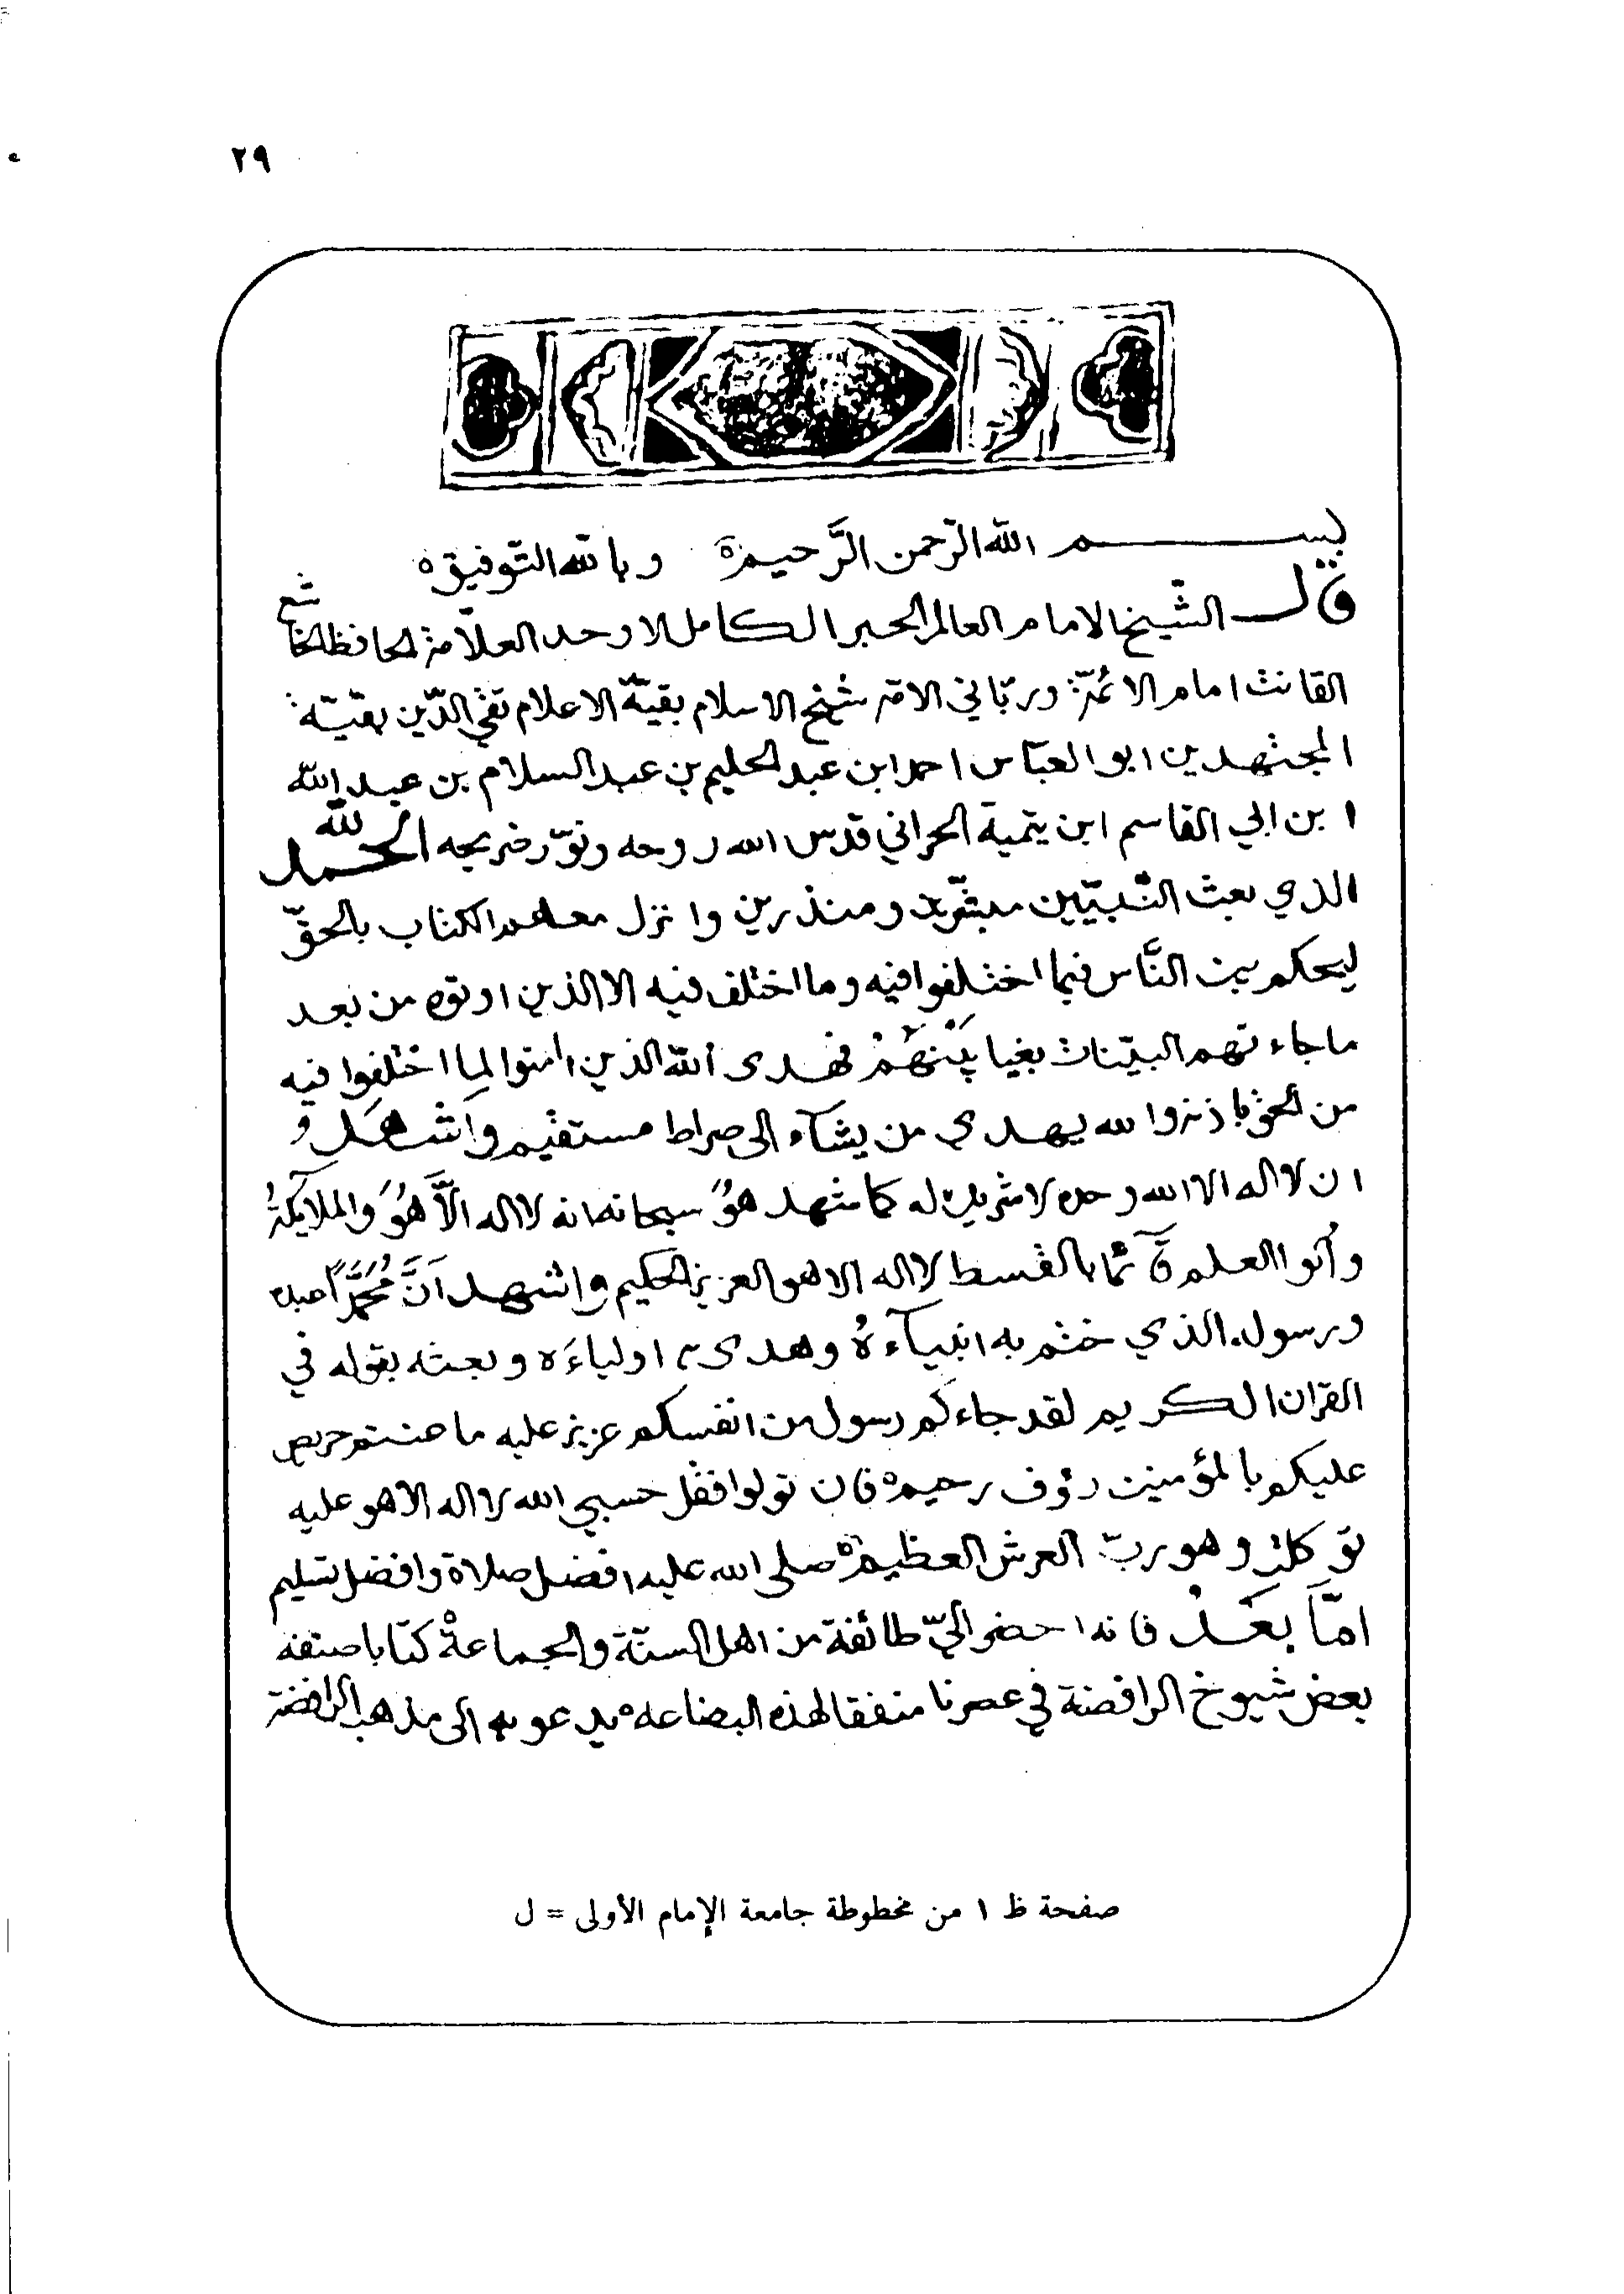 ٢٩
بسم الله الرّحمن الرَّحيم وبالله التّوفيق
قال الشّيخ الامام العالم الحبر الكامل الاوحد العلّامة الحافظ الخاشع
القانت امام الائمّة وربّاني الامة شيخ الاسلام بقيّة الاعلام تقي الدّين بقيّة
المجتهدين ابو العبّاس احمد ابن عبد الحليم بن عبد السلام بن عبد الله
ابن ابي القاسم ابن يتمية الحراني قدس الله روحه ونوّر ضريحه الحمد لله
الذي بعث النّبيّين مبشّرين ومنذرين وانزل معهم الكتاب بالحقّ
ليحكم بين النّاس فيما اختلفوا فيه وما اختلف فيه الا الذين اوتوه من بعد
ما جاءتهم البيّنات بغيا بَيْنَهُمْ فهدى الله الذين امنوا لما اختلفوا فيه
من الحق باذنه والله يهدي من يشآء الى صراط مستقيم وَاشهَدُ
ان لا اله الا الله وحده لا شريك له كما شهد هوُ سبحانه انه لا اله الّا هُوَ والملايكةُ
وأُلوا العلم قآئما بالقسط لا اله الا هو العزيز الحكيم واشهد اَنَّ مُحَمَّداً عبده
ورسوله الذي ختم به انبيآءهُ وهدى به اولياءَه وبعثه بقوله في
القران الكريم لقد جاءكم رسول من انفسكم عزيز عليه ما عنتم حريص
عليكم بالمؤمنين رؤف رحيم فان تولوا فقل حسبي الله لا اله الا هو عليه
توكلت وهو ربّ العرش العظيم صلى الله عليه افضل صلاة وافضل تسليم
امّا بَعَدُ فانه احضر اليّ طائفة من اهل السنّة والجماعةْ كتابا صنفه
بعض شيوخ الرافضة في عصرنا منفقا لهذه البضاعه يدعو به الى مذهب الرافضة
صفحة ظ ١ من مخطوطة جامعة الإمام الأولى = ل